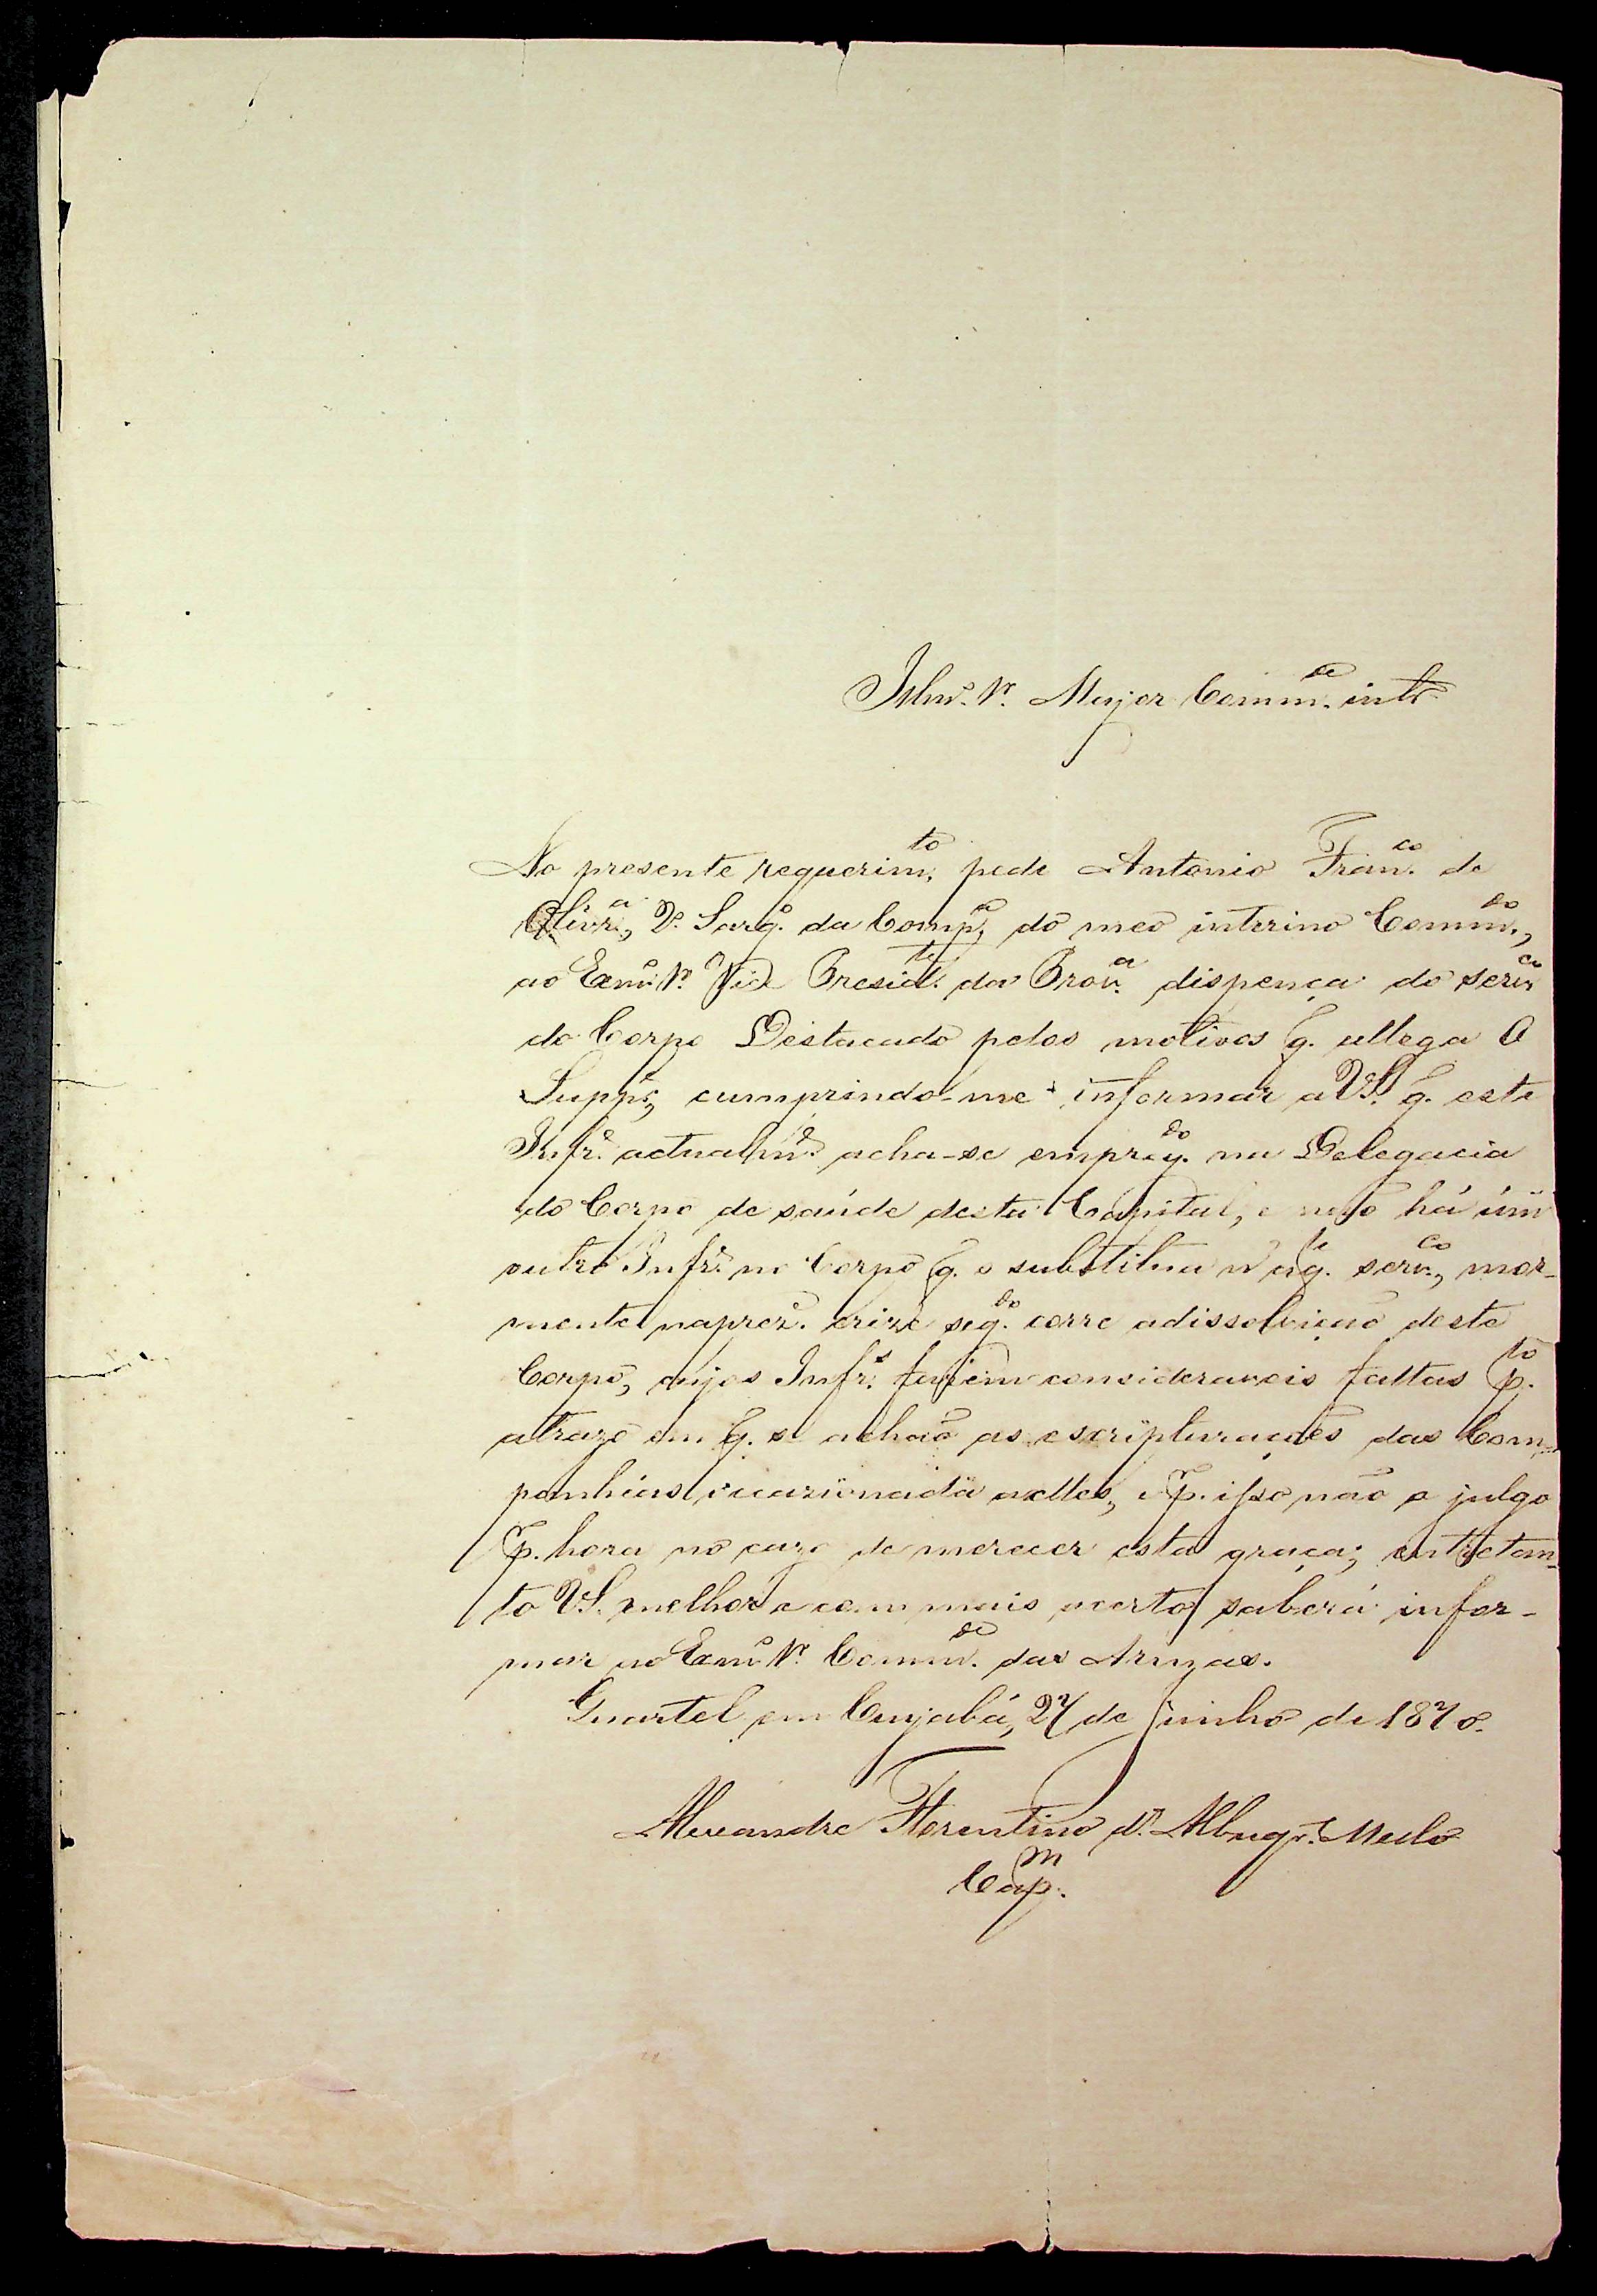 Illmo. Sr. Major Comm.de intr.
No presente requerim.to pede Antonio Fran.co de
Olivr.a, 2.º Sarg.º da Comp.a do meo interino Comm.do,
ao Exmo. Sr. Vice Presid.te da Prov.a dispença do serv.ço
do Corpo Destacado pelos motivos q. allega O
Supp.e, cumprindo-me informar a V.S. q. este
Infr.e actualm.e acha-se empreg.do na Delegacia
do Corpo de saúde desta Capital, e não há úm
outro Infr.e no Corpo q. o substitua n'aq.le serv.co, mor-
mente naprez.e crize seg.do corre adissolvição deste
Corpo, cujos Infr.s fazem consideraveis faltas p.lo
atrazo em q. se achaõ as escripturações das Com-
panhias occazionada aelles, e p.r isso não o julgo
p.r hora no cazo de merecer esta graça; entretan-
to V.S. melhor e com mais acerto saberá infor-
mar ao Exmo. Sr. Comm.de das Armas.
Quartel em Cuyabá, 27 de Junho de 1870.
Alexandre Florentino d' Albuqr.e Mello
Cap.m